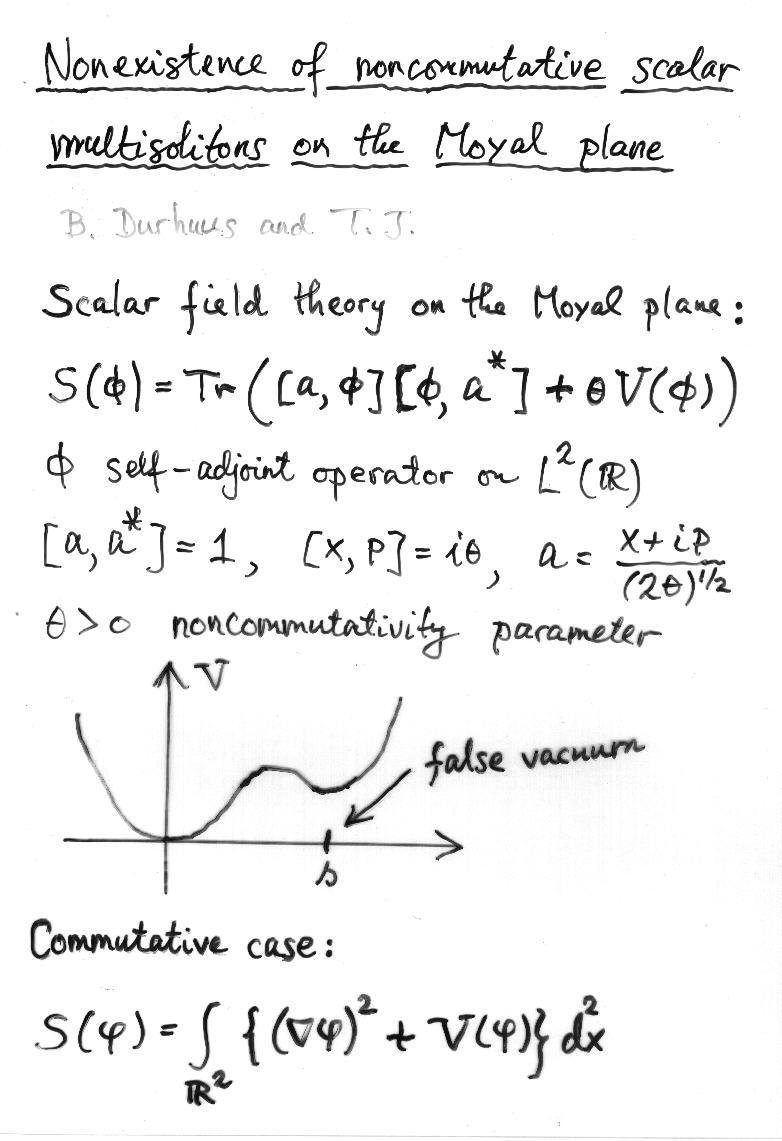 Nonexistence of noncommutative scalar
multisolitons on the Moyal plane
B. Durhuus and T. J.
Scalar field theory on the Moyal plane:
S(ϕ) = Tr([a, ϕ][ϕ, a*] + θV(ϕ))
ϕ self-adjoint operator on L²(ℝ)
[a, a*] = 1, [x, p] = iθ, a = (x + ip)/(2θ)^{1/2}
θ > 0 noncommutativity parameter
V
false vacuum
s
Commutative case:
S(φ) = ∫_{ℝ²} {(∇φ)² + V(φ)} d²x